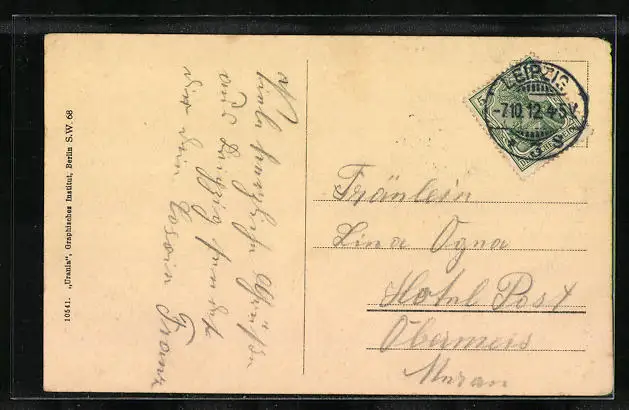 Viele herzliche Grüße
aus Leipzig sendet
dir dein
Franz
Fräulein
Lina Ogna
Hotel Post
Obermais
Meran
LEIPZIG
-7.10.12.4-5
10541. „Urania", Graphisches Institut, Berlin S.W. 68